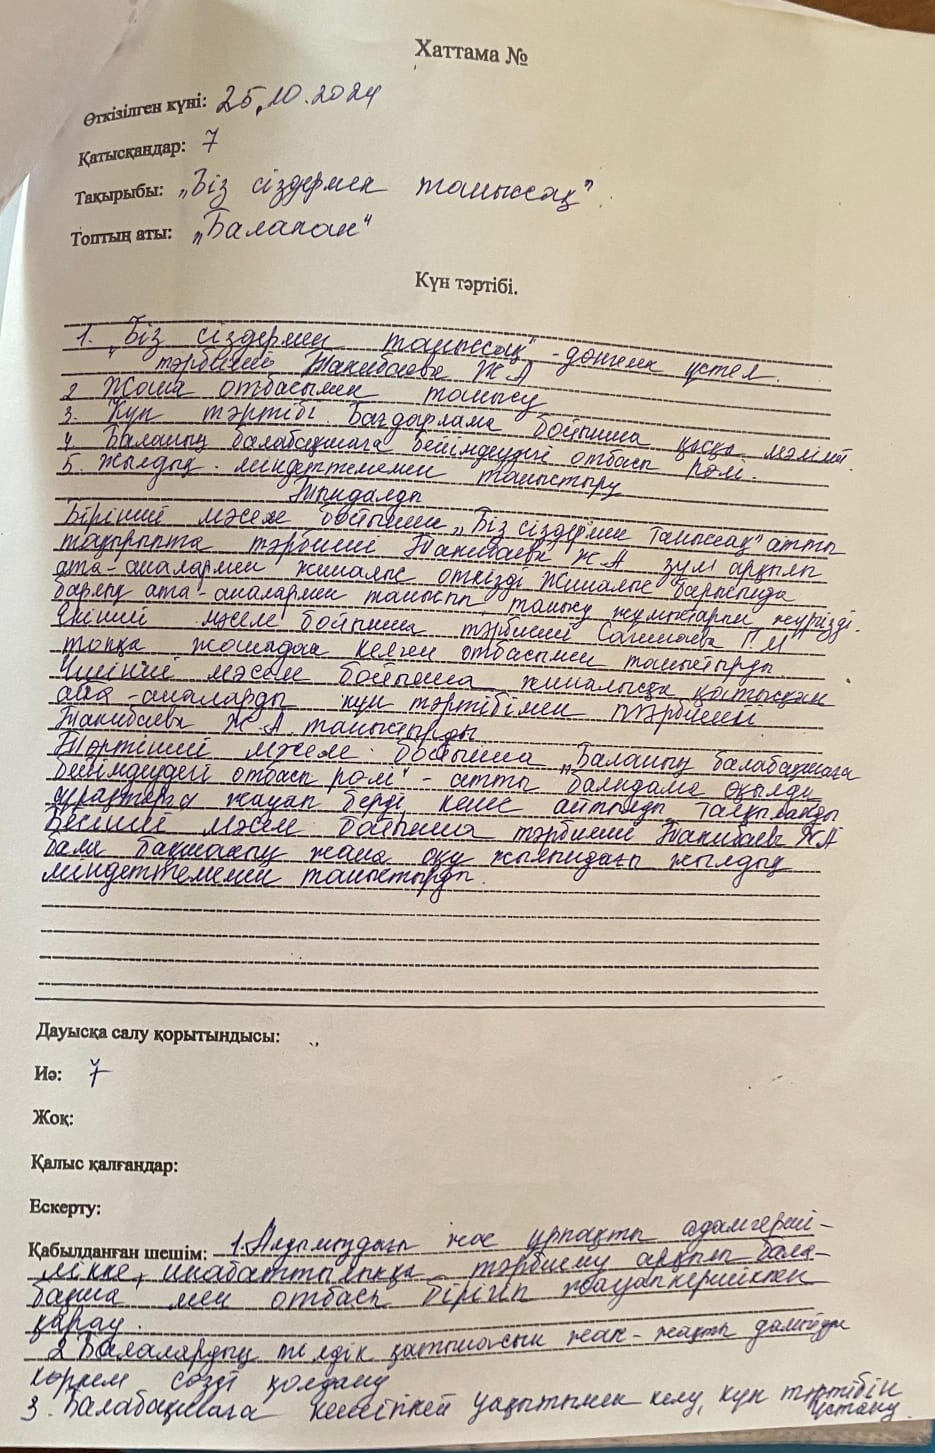 Хаттама №
Өткізілген күні: 25.10.2024
Қатысқандар: 7
Тақырыбы: „Біз сіздермен таныссақ"
Топтың аты: „Балапан"
Күн тәртібі.
1. „Біз сіздермен таныссақ" - дөңгелек үстел.
тәрбиеші Такибаева Ж А
2 Жаңа отбасымен танысу
3. Күн тәртібі. Бағдарлама бойынша қысқа мәлімет.
4. Баланың балабақшаға бейімдеудегі отбасы рөлі.
5. Жылдық міндеттемемен таныстыру
Тыңдалды
Бірінші мәселе бойынша „Біз сіздермен таныссақ" атты
тақырыпта тәрбиеші Такибаева Ж А зум арқылы
ата-аналармен жиналыс өткізді Жиналыс барысында
барлық ата-аналармен танысып танысу жұмыстарын жүргізді.
Екінші мәселе бойынша тәрбиеші Г.М
топқа жаңадан келген отбасымен таныстырды
Үшінші мәселе бойынша жиналысқа қатысқан
ата-аналарды күн тәртібімен тәрбиеші
Такибаева Ж А таныстырды
Төртінші мәселе бойынша „Баланың балабақшаға
бейімдеудегі отбасы рөлі" - атты баяндама оқылды
сұрақтарға жауап берді, кеңес айтылды, талқыланды
Бесінші мәселе бойынша тәрбиеші Такибаева Ж А
бала бақшаның жаңа оқу жылындағы жылдық
міндеттемемен таныстырды.
Дауысқа салу қорытындысы:
Иә: 7
Жоқ:
Қалыс қалғандар:
Ескерту:
Қабылданған шешім: 1. Алдымыздағы жас ұрпақты адамгерші-
лікке, инабаттылыққа тәрбиелеу арқылы бала-
бақша мен отбасы бірігіп жауапкершікпен
қарау.
2 Балалардың тілдік қатынасын жан-жақты дамытуда
көркем сөзді қолдану
3. Балабақшаға кешікпей уақытымен келу, күн тәртібін
ұстану.